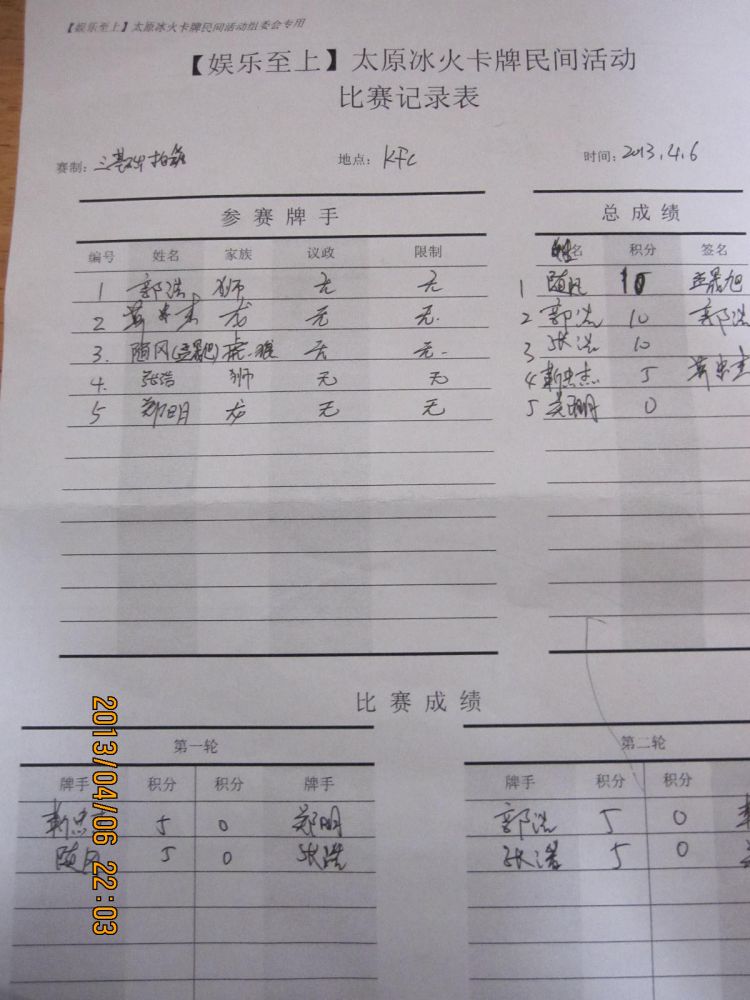 【娱乐至上】太原冰火卡牌民间活动组委会专用
【娱乐至上】太原冰火卡牌民间活动
比赛记录表
赛制：三基础拍组 地点：KFC 时间：2013.4.6
参赛牌手
编号 姓名 家族 议政 限制
1 郭浩 狮 无 无
2 龙 无 无.
3. 随风 无 无.
4. 张浩 狮 无 无
5 郑明 龙 无 无
总成绩
姓名 积分 签名
1 随风 10
2 郭浩 10 郭浩
3 张浩 10
4 靳忠杰 5 靳忠杰
5 0
比赛成绩
第一轮
牌手 积分 积分 牌手
靳忠 5 0 郑明
随风 5 0 张浩
第二轮
牌手 积分 积分
郭浩 5 0
张浩 5 0
2013/04/06 22:03